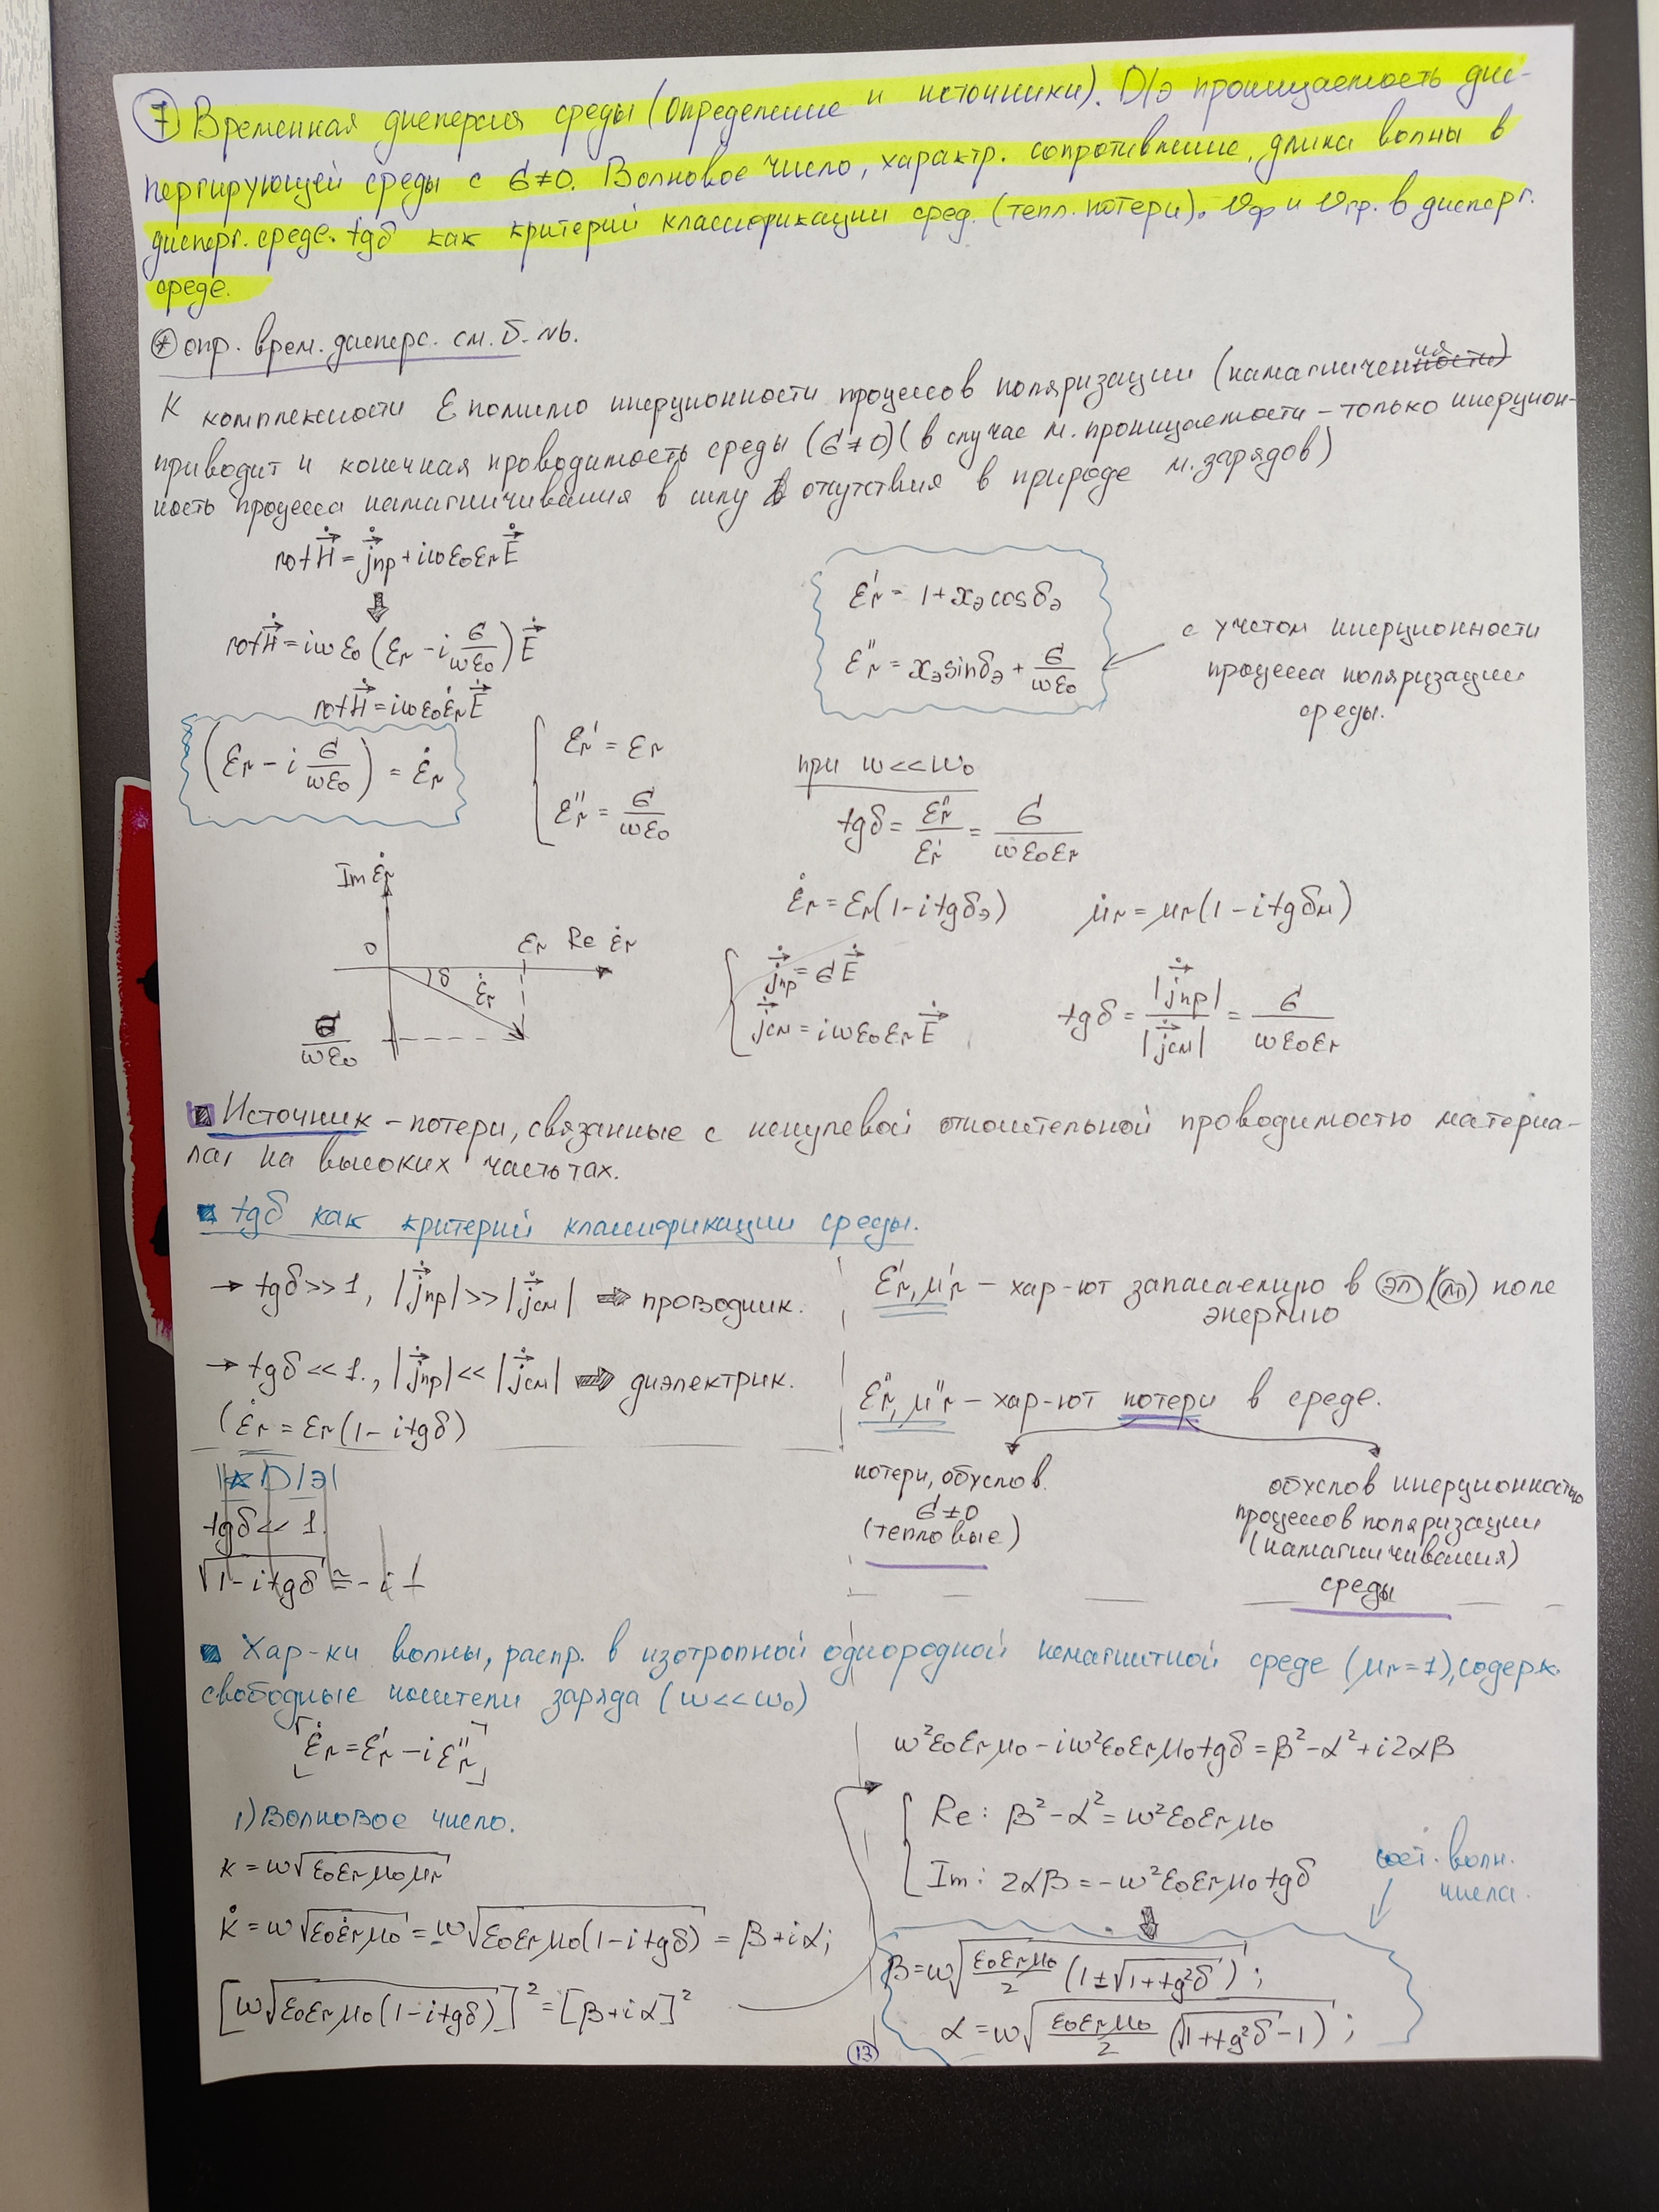 ⑦ Временная дисперсия среды (определение и источники). D/э проницаемость дис-
пергирующей среды с σ≠0. Волновое число, характр. сопротивление, длина волны в
дисперг. среде. tgδ как критерий классификации сред. (тепл. потери). υф и υгр. в дисперг.
среде.
⊛ опр. врем. дисперс. см. б. №6.
К комплексности ε помимо инерционности процессов поляризации (намагничения)
приводит и конечная проводимость среды (σ≠0) (в случае м. проницаемости – только инерцион-
ность процесса намагничивания в силу отсутствия в природе м. зарядов)
rot Ḣ⃗ = j̇⃗пр + iωε₀εr Ė⃗
⇓
rot Ḣ⃗ = iωε₀(εr - i σ/(ωε₀)) Ė⃗
rot Ḣ⃗ = iωε₀ε̇r Ė⃗
(εr - i σ/(ωε₀)) = ε̇r
{ εr' = εr
εr'' = σ/(ωε₀)
εr' = 1 + xэ cosδэ
εr'' = xэ sinδэ + σ/(ωε₀)
с учетом инерционности
процесса поляризации
среды.
при ω<<ω₀
tgδ = εr''/εr' = σ/(ωε₀εr)
ε̇r = εr(1 - i tgδэ) μ̇r = μr(1 - i tgδм)
Im ε̇r
0 εr Re ε̇r
δ ε̇r
σ/(ωε₀)
{ j̇⃗пр = σĖ⃗
j̇⃗см = iωε₀εr Ė⃗
tgδ = |j̇⃗пр|/|j̇⃗см| = σ/(ωε₀εr)
Источник – потери, связанные с ненулевой относительной проводимостью материа-
ла, на высоких частотах.
tgδ как критерий классификации среды.
→ tgδ>>1, |j̇⃗пр| >> |j̇⃗см| ⇒ проводник.
→ tgδ<<1., |j̇⃗пр| << |j̇⃗см| ⇒ диэлектрик.
(ε̇r = εr(1 - i tgδ)
☆ D/Э
tgδ<< 1.
√(1 - i tgδ) ≅ - i 1
εr', μr' – хар-ют запасаемую в эл (м) поле
энергию
εr'', μr'' – хар-ют потери в среде.
потери, обуслов.
σ≠0
(тепловые)
обуслов инерционностью
процессов поляризации
(намагничивания)
среды
Хар-ки волны, распр. в изотропной однородной немагнитной среде (μr=1), содерж.
свободные носители заряда (ω<<ω₀)
[ε̇r = εr' - iεr'']
1) Волновое число.
k = ω√(ε₀εrμ₀μr)
k̇ = ω√(ε₀ε̇rμ₀) = ω√(ε₀εrμ₀(1 - i tgδ)) = β + iα;
[ω√(ε₀εrμ₀(1 - i tgδ))]² = [β + iα]²
ω²ε₀εrμ₀ - iω²ε₀εrμ₀ tgδ = β² - α² + i2αβ
{ Re: β² - α² = ω²ε₀εrμ₀
Im: 2αβ = -ω²ε₀εrμ₀ tgδ
⇓
волн.
числа.
β = ω√(ε₀εrμ₀/2 (1 ± √(1 + tg²δ)));
α = ω√(ε₀εrμ₀/2 (√(1 + tg²δ) - 1));
13